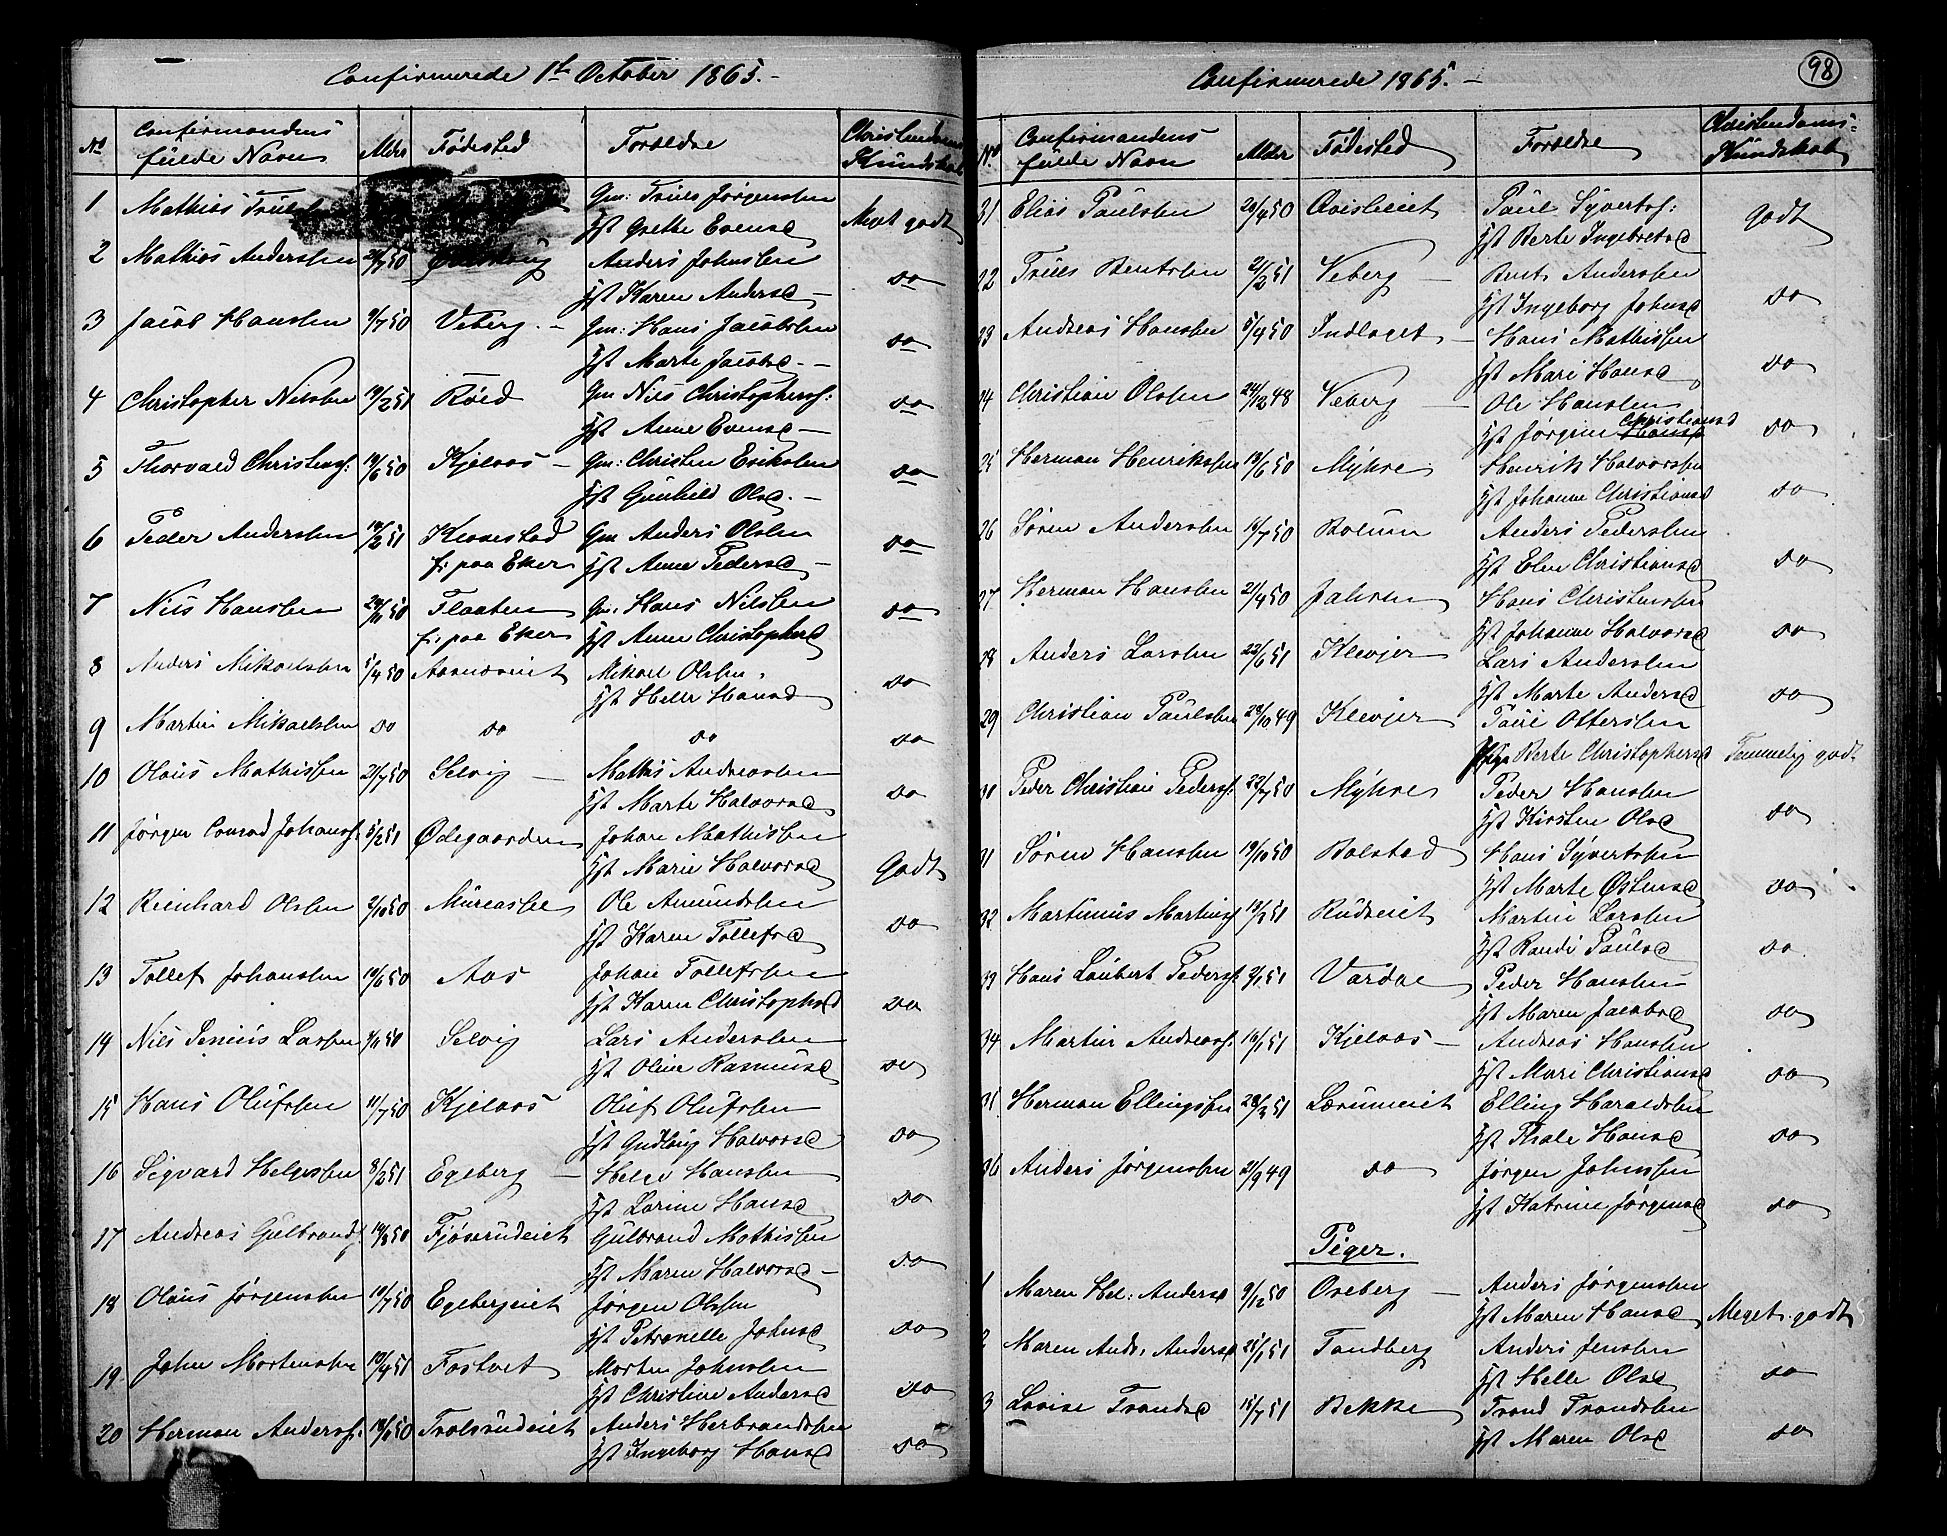 Confirmerede 1ste October 1865.
No Confirmandens fulde Navn Alder Fødested Forældre Christendoms Kundskab
1 Mathias Gm: Truls Jørgensen Meget godt
Hst Grethe Evensd
2 Mathias Andersen Anders Johnsen do
Hst Karen Andersd
3 Jacob Hansen 9/7 50 Veberg Gm: Hans Jacobsen do
Hst Marte Jacobsd
4 Christopher Nilsen 19/2 51 Røed Gm Nils Christophersf: do
Hst Anne Evensd
5 Thorvald Christensf: 19/6 50 Kjelaas Gm: Christen Eriksen do
Hst Gunhild Olsd.
6 Peder Andersen 19/2 51 Gm Anders Olsen do
f: paa Eker Hst Anne Pedersd
7 Nils Hansen Flaaten Gm. Hans Nilsen do
f: paa Eker Hst Anne Christophersd
8 Anders Mikaelsen 5/4 50 Mikael Olsen do
Hst Helle Hansd
9 Martin Mikaelsen do do do do
10 Olaus Mathisen 21/7 50 Selvig Mathis Andreassen do
Hst Marte Halvorsd
11 Jørgen Conrad Johansf: 5/2 51 Ødegaarden Johan Mathisen Godt
Hst Maria Halvorsd
12 Reinhard Olsen 2/10 50 Ole Amundsen do
Hst Karen Tollefsd
13 Tollef Johansen 19/6 50 Aas Johan Tollefsen do
Hst Karen Christophsd
14 Nils Larsen Selvig Lars Andersen do
Hst Oline Rasmusd
15 Hans Olufsen 11/7 50 Kjelaas Oluf Olufsen do
Hst Gudlaug Halvorsd
16 Sigvard Helgesen 8/2 51 Egeberg Helge Hansen do
Hst Larine Hansd
17 Andreas Gulbrands 19/8 50 Fjøsrudeiet Gulbrand Mathisen do
Hst Maren Halvorsd
18 Olaus Jørgensen 19/7 50 Egebergeiet Jørgen Olsen do
Hst Petronelle Johnsd
19 John Mortensen 19/4 51 Fostvet Morten Johnsen do
Hst Christine Andersd
20 Herman Andersf: Trolsrudeiet Anders Herbrandsen do
Hst Ingeborg Hansd
Confirmerede 1865.
98
No. Confirmandens fulde Navn Alder Fødested Forældre Christendoms-Kundskab
21 Elias Paulsen 20/4 50 Paul Syvertsf: Godt
Hst Berte Ingebretsd
22 Truls Bentsen 21/2 51 Veberg Bent Andersen do
Hst Ingeborg Johnsd
23 Andreas Hansen 5/4 50 Indlaget Hans Mathisen do
Hst Mari Hansd
24 Christian Olsen 24/12 48 Veberg Ole Hansen do
Hst Jørgine Christiansd
25 Herman Henriksen 19/6 50 Myhre Henrik Halvorsen do
Hst Johanne Christiansd
26 Søren Andersen 16/7 50 Bolum Anders Pedersen do
Hst Elen Christiansd
27 Herman Hansen 21/4 50 Jahren Hans Christensen do
Hst Johanne Halvorsd
28 Anders Larsen 22/6 51 Klevjer Lars Andersen do
Hst Marte Andersd
29 Christian Paulsen 28/10 49 Klevjer Paul Ottersen
Berte Christophersd Temmelig godt
30 Peder Christian Pedersf: 22/7 50 Myhre Peder Hansen do
Hst Kirsten Olsd
31 Søren Hansen 19/10 50 Bolstad Hans Syvertsen do
Hst Marte Østensd
32 Martinius Martins 19/3 51 Rudseiet Martin Larsen do
Hst Randi Paulsd
33 Hans Laubert Pedersf: 2/1 51 Vardal Peder Hansen do
Hst Maren Jacobsd
34 Martin Andreasf: 16/1 51 Kjelaas Andreas Hansen do
Hst Mari Christiansd
35 Herman Ellingsen 28/3 51 Lærumeiet Elling Haraldsen do
Hst Thale Hansd
36 Anders Jørgensen 21/9 49 do Jørgen Johnsen do
Hst Katrine Jørgensd
Piger.
1 Maren Hel: Andersd 9/12 50 Oseberg Anders Jørgensen
Hst Maren Hansd Meget godt
2 Maren Andr. Andersd Tandberg Anders Jensen do
Hst Helle Olsd
3 Lovise Trondsd 15/7 51 Bekke Trond Trondsen do
Hst Maren Olsd